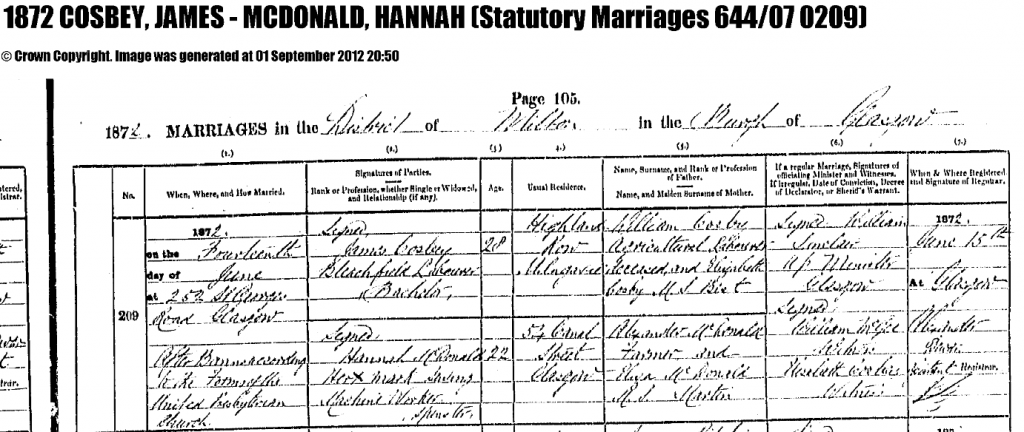 1872 COSBEY, JAMES - MCDONALD, HANNAH (Statutory Marriages 644/07 0209)
© Crown Copyright. Image was generated at 01 September 2012 20:50
Page 105.
1872. MARRIAGES in the District of Milton in the Burgh of Glasgow
(1.) (2.) (3.) 4.) (5.) (6.) (7.)
No.
When, Where, and How Married.
Signatures of Parties.
Rank or Profession, whether Single or Widowed, and Relationship (if any).
Age.
Usual Residence.
Name, Surname, and Rank or Profession of Father.
Name, and Maiden Surname of Mother.
If a regular Marriage, Signatures of officiating Minister and Witnesses. If irregular, Date of Conviction, Decree of Declarator, or Sheriff's Warrant.
When & Where Registered and Signature of Registrar.
209
1872.
on the Fourteenth
day of June
at 252 St Georges
Road Glasgow
After Banns according
to the Forms of the
United Presbyterian
Church.
Signed
James Cosbey
Bleachfield Labourer
Bachelor
28
Highland
Row
Milngavie
William Cosby
Agricultural Labourer
deceased and Elizabeth
Cosby M.S.
Signed William
Sinclair
U.P. Minister
Glasgow
Signed
William
Witness
Elizabeth Cosbey
Witness
1872.
June 15th
At Glasgow
Assistant Registrar.
Signed
Hannah McDonald
Her x mark Sewing
Machine Worker
Spinster
22
54 Canal
Street
Glasgow
Alexander McDonald
Farmer and
Eliza McDonald
M.S. Martin